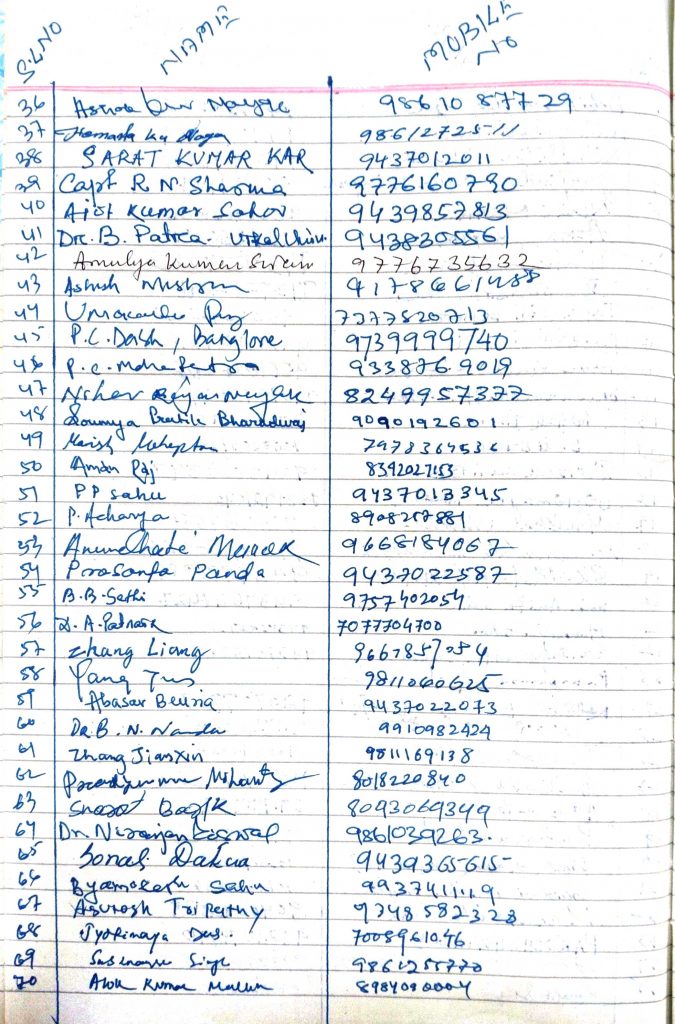 SL NO NAME MOBILE NO
36 Nayak 98610 87729
37 Hemanta Ku 9861272511
38 SARAT KUMAR KAR 9437012011
39 Capt R N Sharma 9776160790
40 Ajit Kumar Sahoo 9439857813
41 Dr. B. Patra. Utkal Univ. 9438305561
42 Amulya Kumar Swain 9776735632
43 Ashish Mishra
44 7377520713
45 P.C. Dash, Banglore 9739999740
46 P.C. Mohapatra 933876 9019
47 Nayak 8249957377
48 Soumya Pratik Bharadwaj 9090192601
49 Harish
50 Aman Raj 8392027153
51 PP Sahu 9437013345
52 P. Acharya 8908257884
53 9668184067
54 Prasanta Panda 9437022587
55 B.B. Sethi 9757402054
56 D. A. Patnaik 7077704700
57 Zhang Liang
58 Yang 9811060625
59 Abasar Beuria 9437022073
60 Dr B. N. Nanda 9910982424
61 Zhang Jianxin 9811169138
62 Mohanty 8018220840
63 8093069349
64 Dr. Niranjan 9861039263.
65 Sonali Dakua 9439365615
66 Byomokesh Sahu 9937411119
67 Asutosh Tripathy 9348582323
68 Jyotirmaya Das. 7008961046
69 Singh 9861255770
70 Alok Kumar